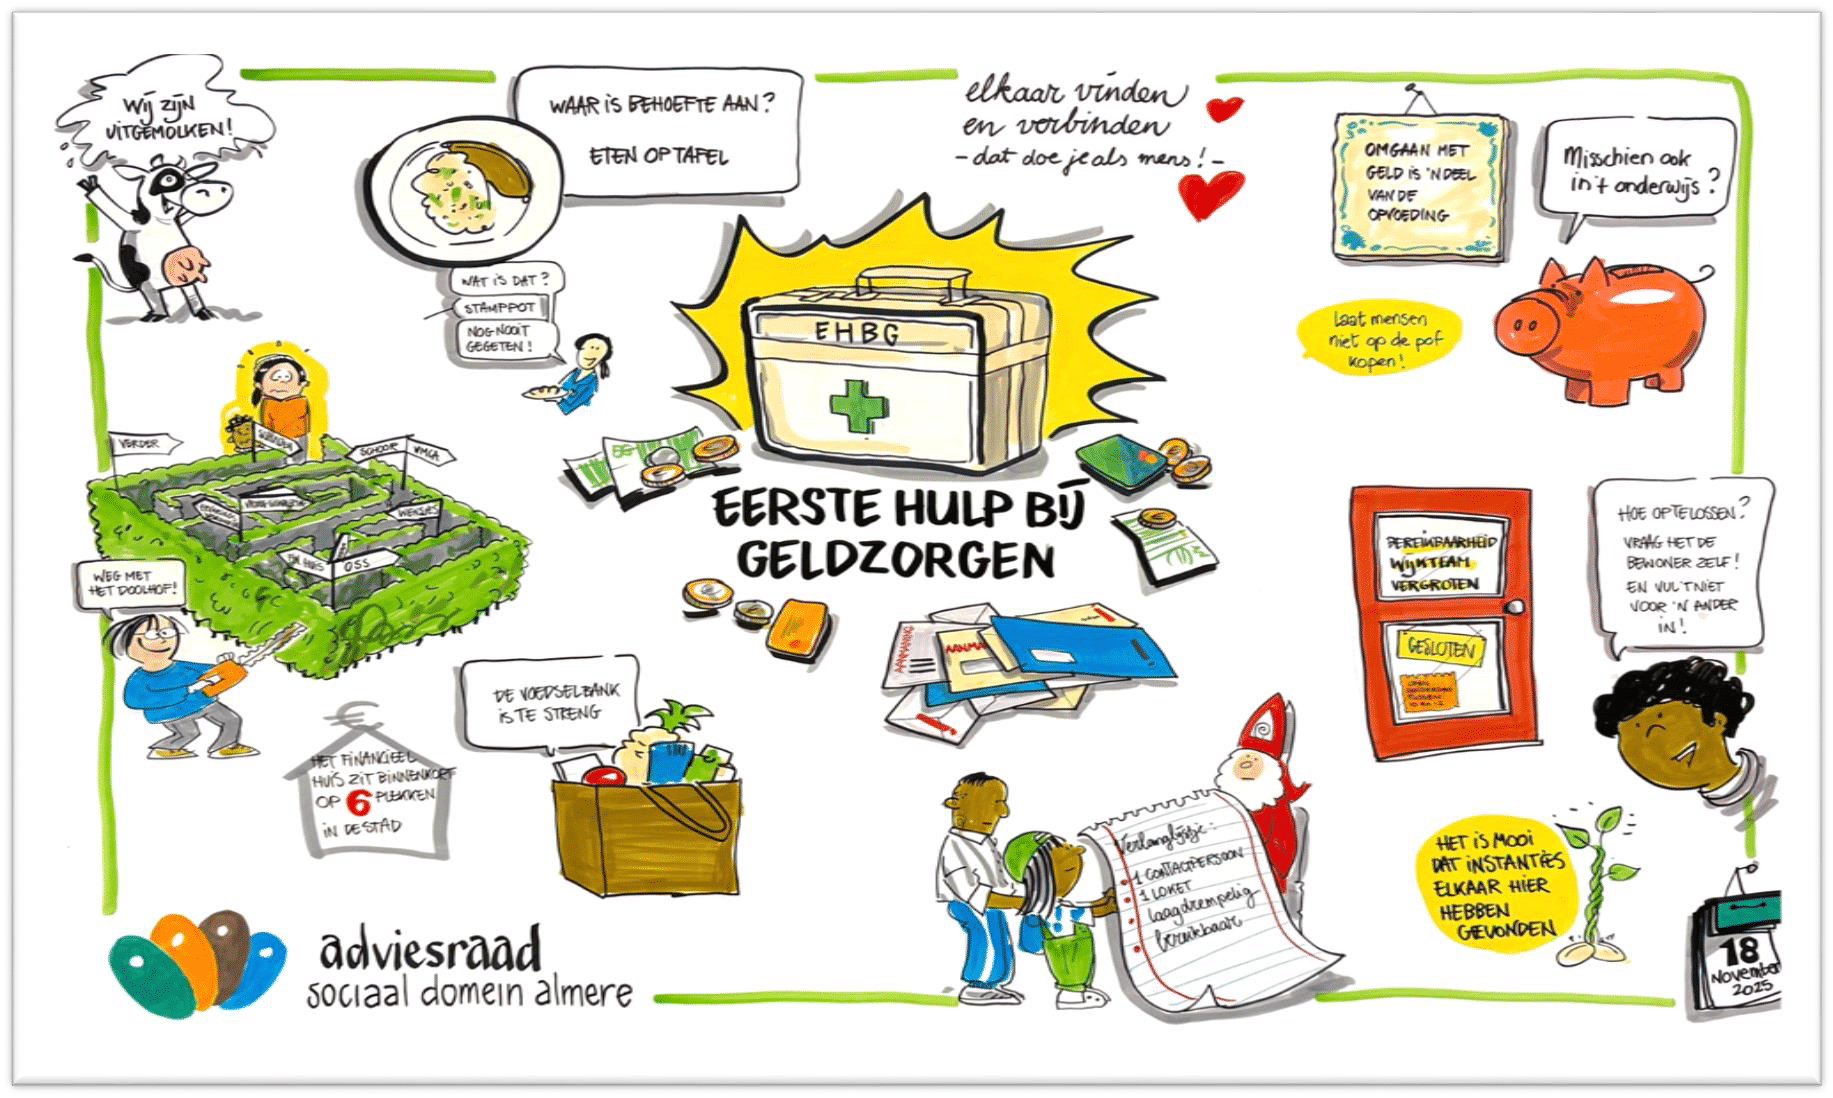 WIJ ZIJN
UITGEMOLKEN!
WAAR IS BEHOEFTE AAN?
ETEN OP TAFEL
elkaar vinden
en verbinden
- dat doe je als mens! -
OMGAAN MET
GELD IS 'N DEEL
VAN DE
OPVOEDING
Misschien ook
in't onderwijs?
WAT IS DAT?
STAMPPOT
NOG NOOIT
GEGETEN!
EHBG
Laat mensen
niet op de pof
kopen!
EERSTE HULP BIJ
GELDZORGEN
VERDER
SCHOOR
VMCA
WENSJES
OSS
WEG MET
HET DOOLHOF!
BEREIKBAARHEID
WIJKTEAM
VERGROTEN
GESLOTEN
HOE OP TE LOSSEN?
VRAAG HET DE
BEWONER ZELF!
EN VUL 'T NIET
VOOR 'N ANDER
IN!
AANMANING
AANMA
DE VOEDSELBANK
IS TE STRENG
HET FINANCIEEL
HUIS ZIT BINNENKORT
OP 6 PLEKKEN
IN DE STAD
Verlanglijstje:
1 CONTACTPERSOON
1 LOKET
laagdrempelig
bereikbaar
HET IS MOOI
DAT INSTANTIES
ELKAAR HIER
HEBBEN
GEVONDEN
18
November
2025
adviesraad
sociaal domein almere